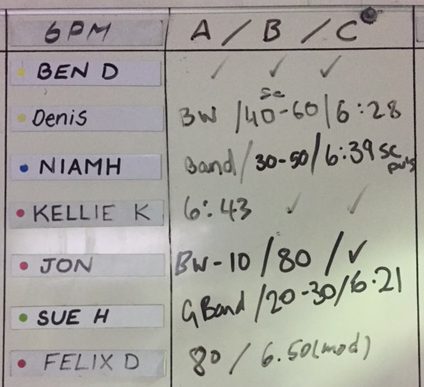 6PM A / B / C
BEN D ✓ ✓ ✓
sc
Denis BW / 40-60 / 6:28
NIAMH Band / 30-50 / 6:39 sc
KELLIE K 6:43 ✓ ✓
JON BW-10 / 80 / ✓
SUE H G Band / 20-30 / 6.21
FELIX D 80 / 6.50 (mod)